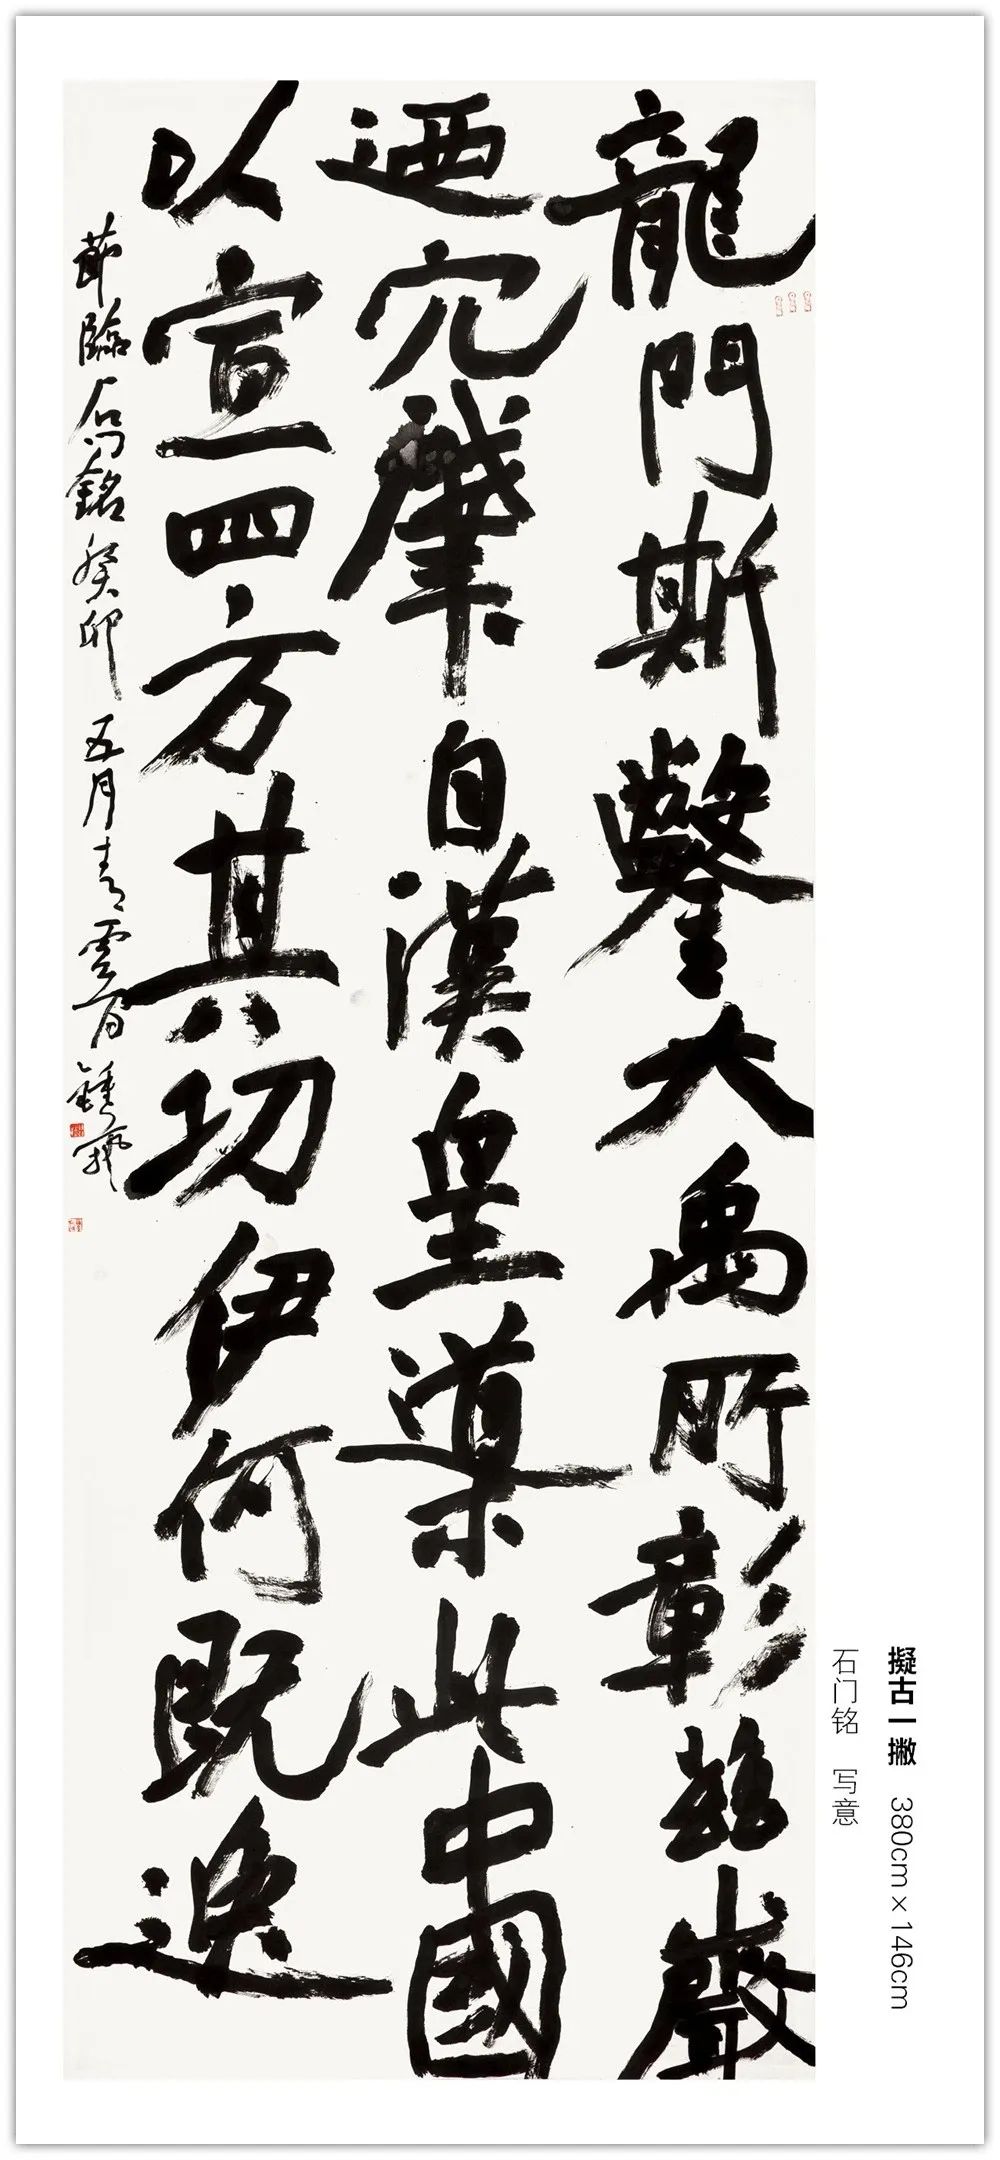 擬古一撇 380cm×146cm
石门铭 写意
龍門斯鑿大禹所彰茲巖
迺穴肇自漢皇導此中國
以宣四方其功伊何既逸
節臨石門銘癸卯五月青雲